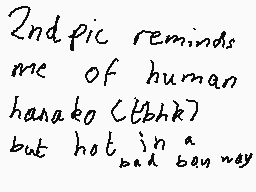 2nd pic reminds
me of human
hanako (tbhk)
but hot in a
bad boy way